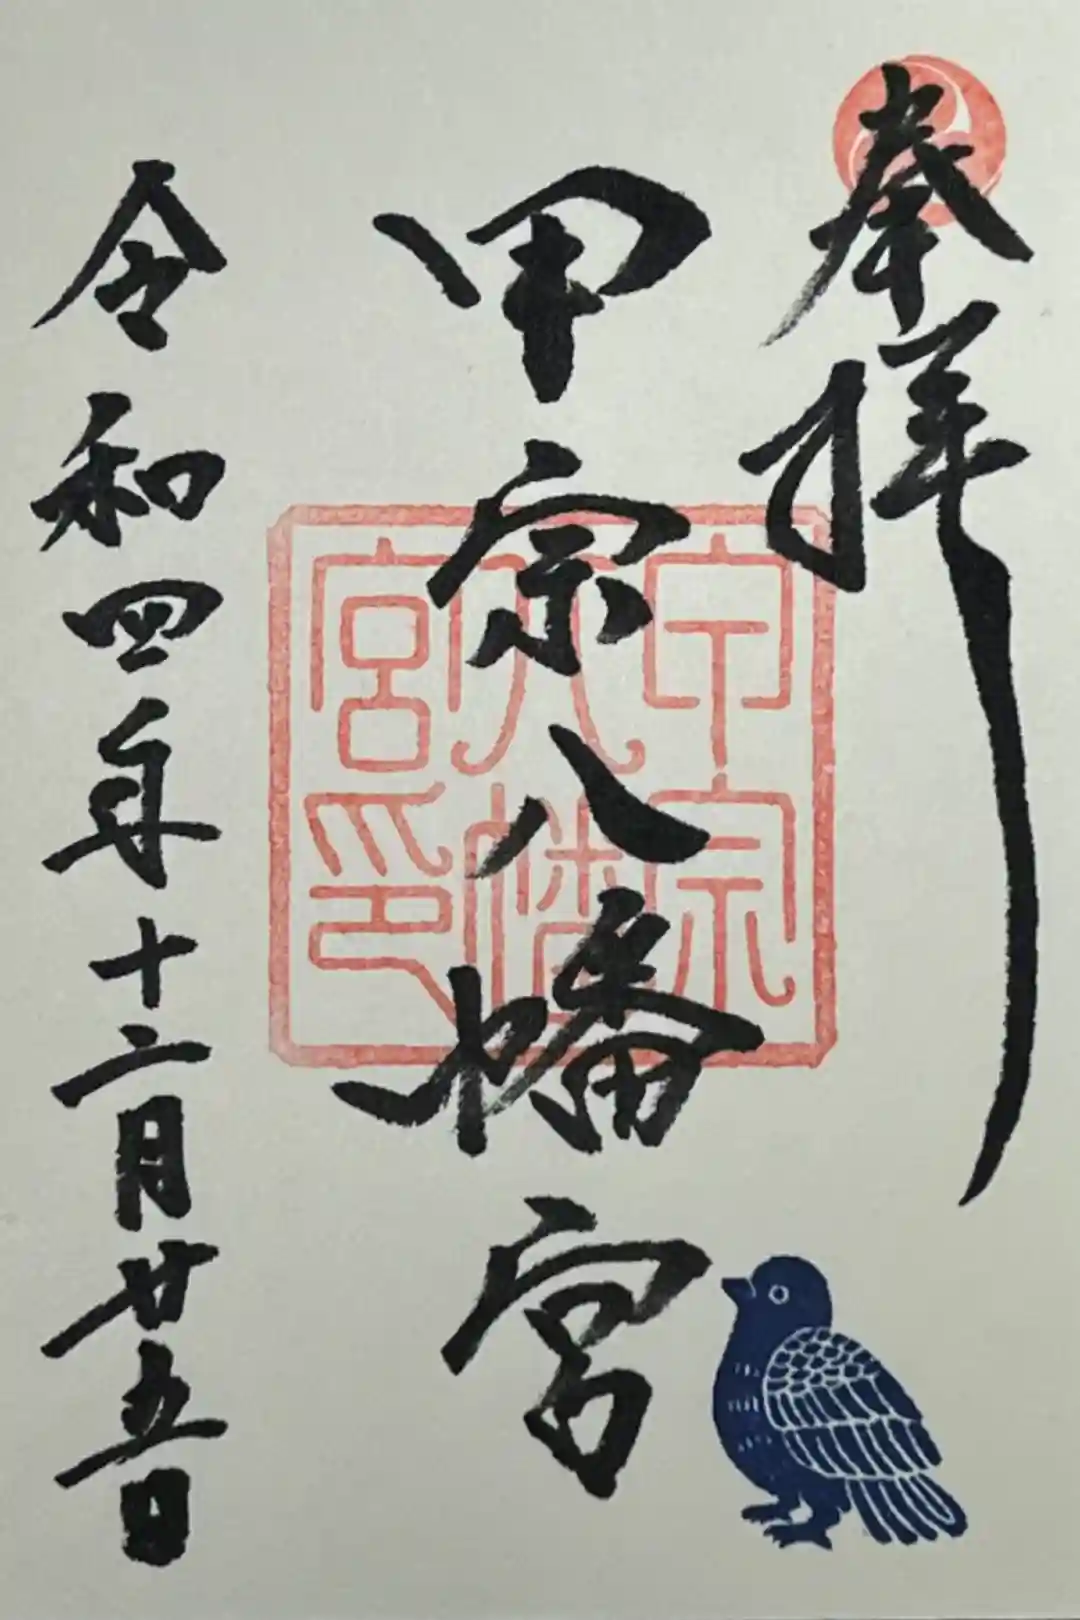 奉拝
甲宗八幡宮
甲宗八幡宮印
令和四年十二月廿五日